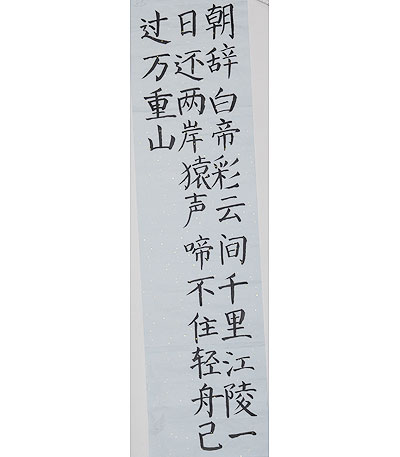 朝辞白帝彩云间千里江陵一
日还两岸猿声啼不住轻舟己
过万重山